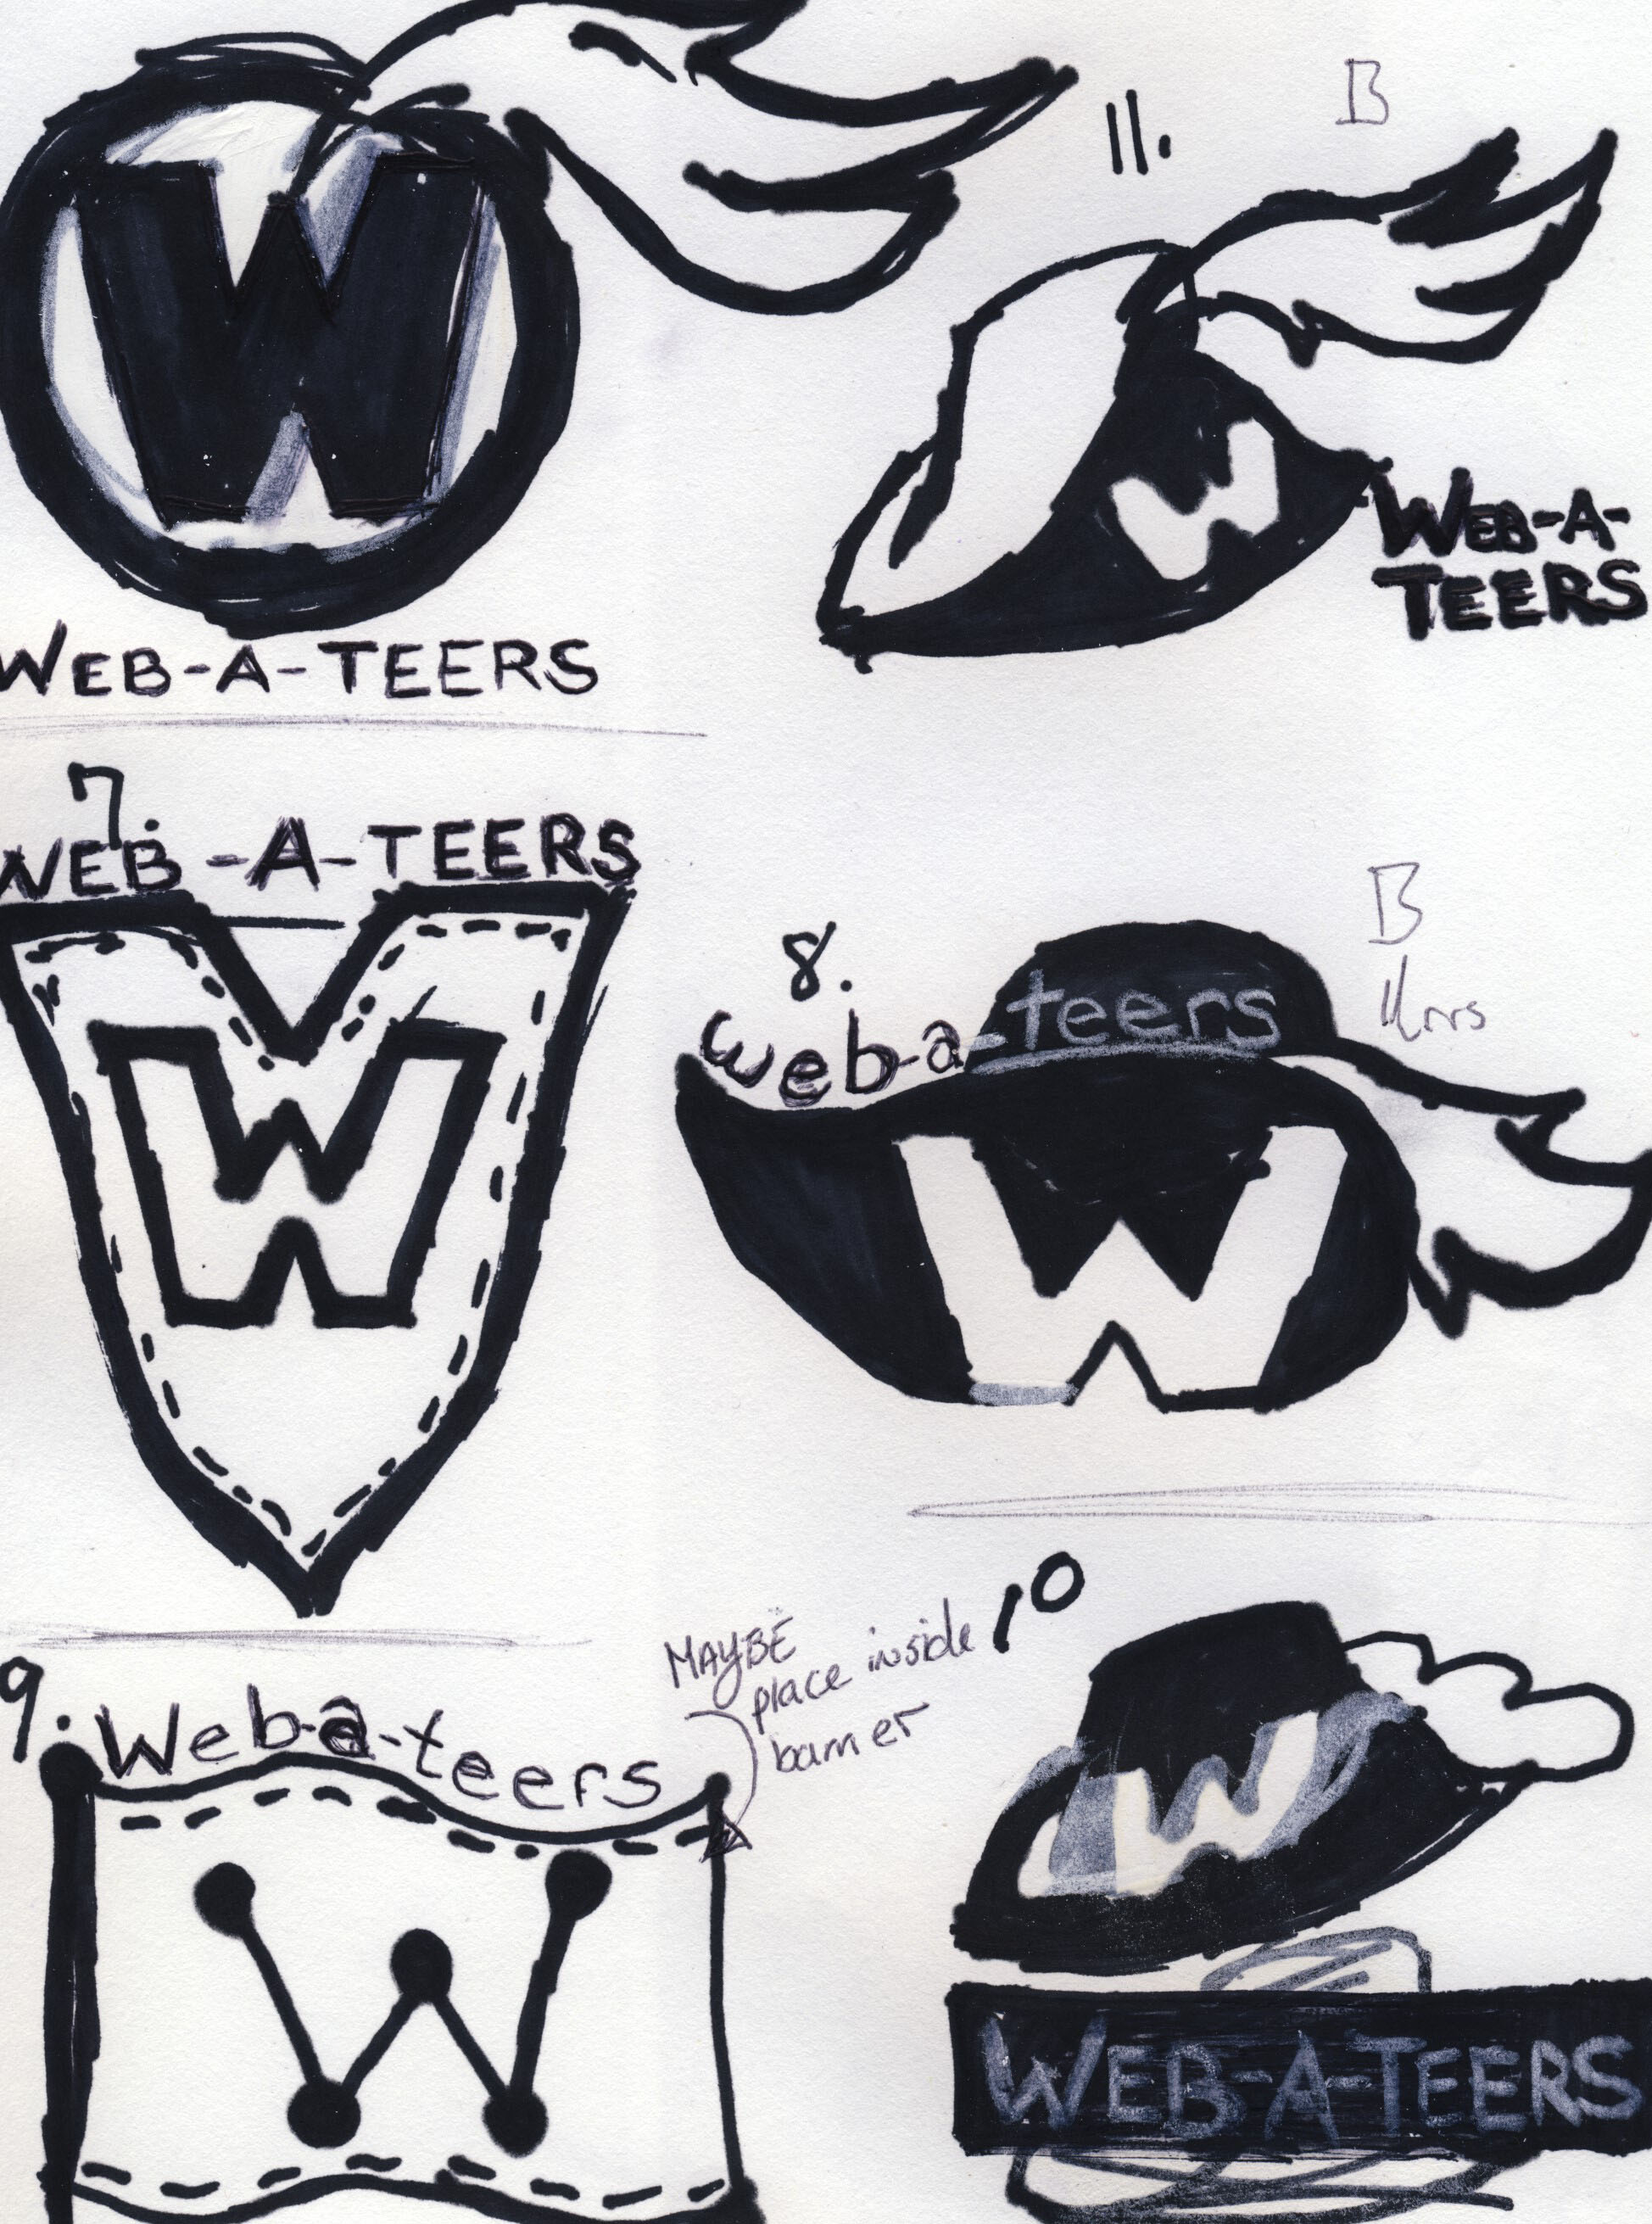 W
WEB-A-TEERS
11.
B
W
WEB-A-
TEERS
7.
WEB-A-TEERS
W
B
8.
web-a-teers
W
9.
Web-a-teers
W
MAYBE
place inside
banner
10
W
WEB-A-TEERS